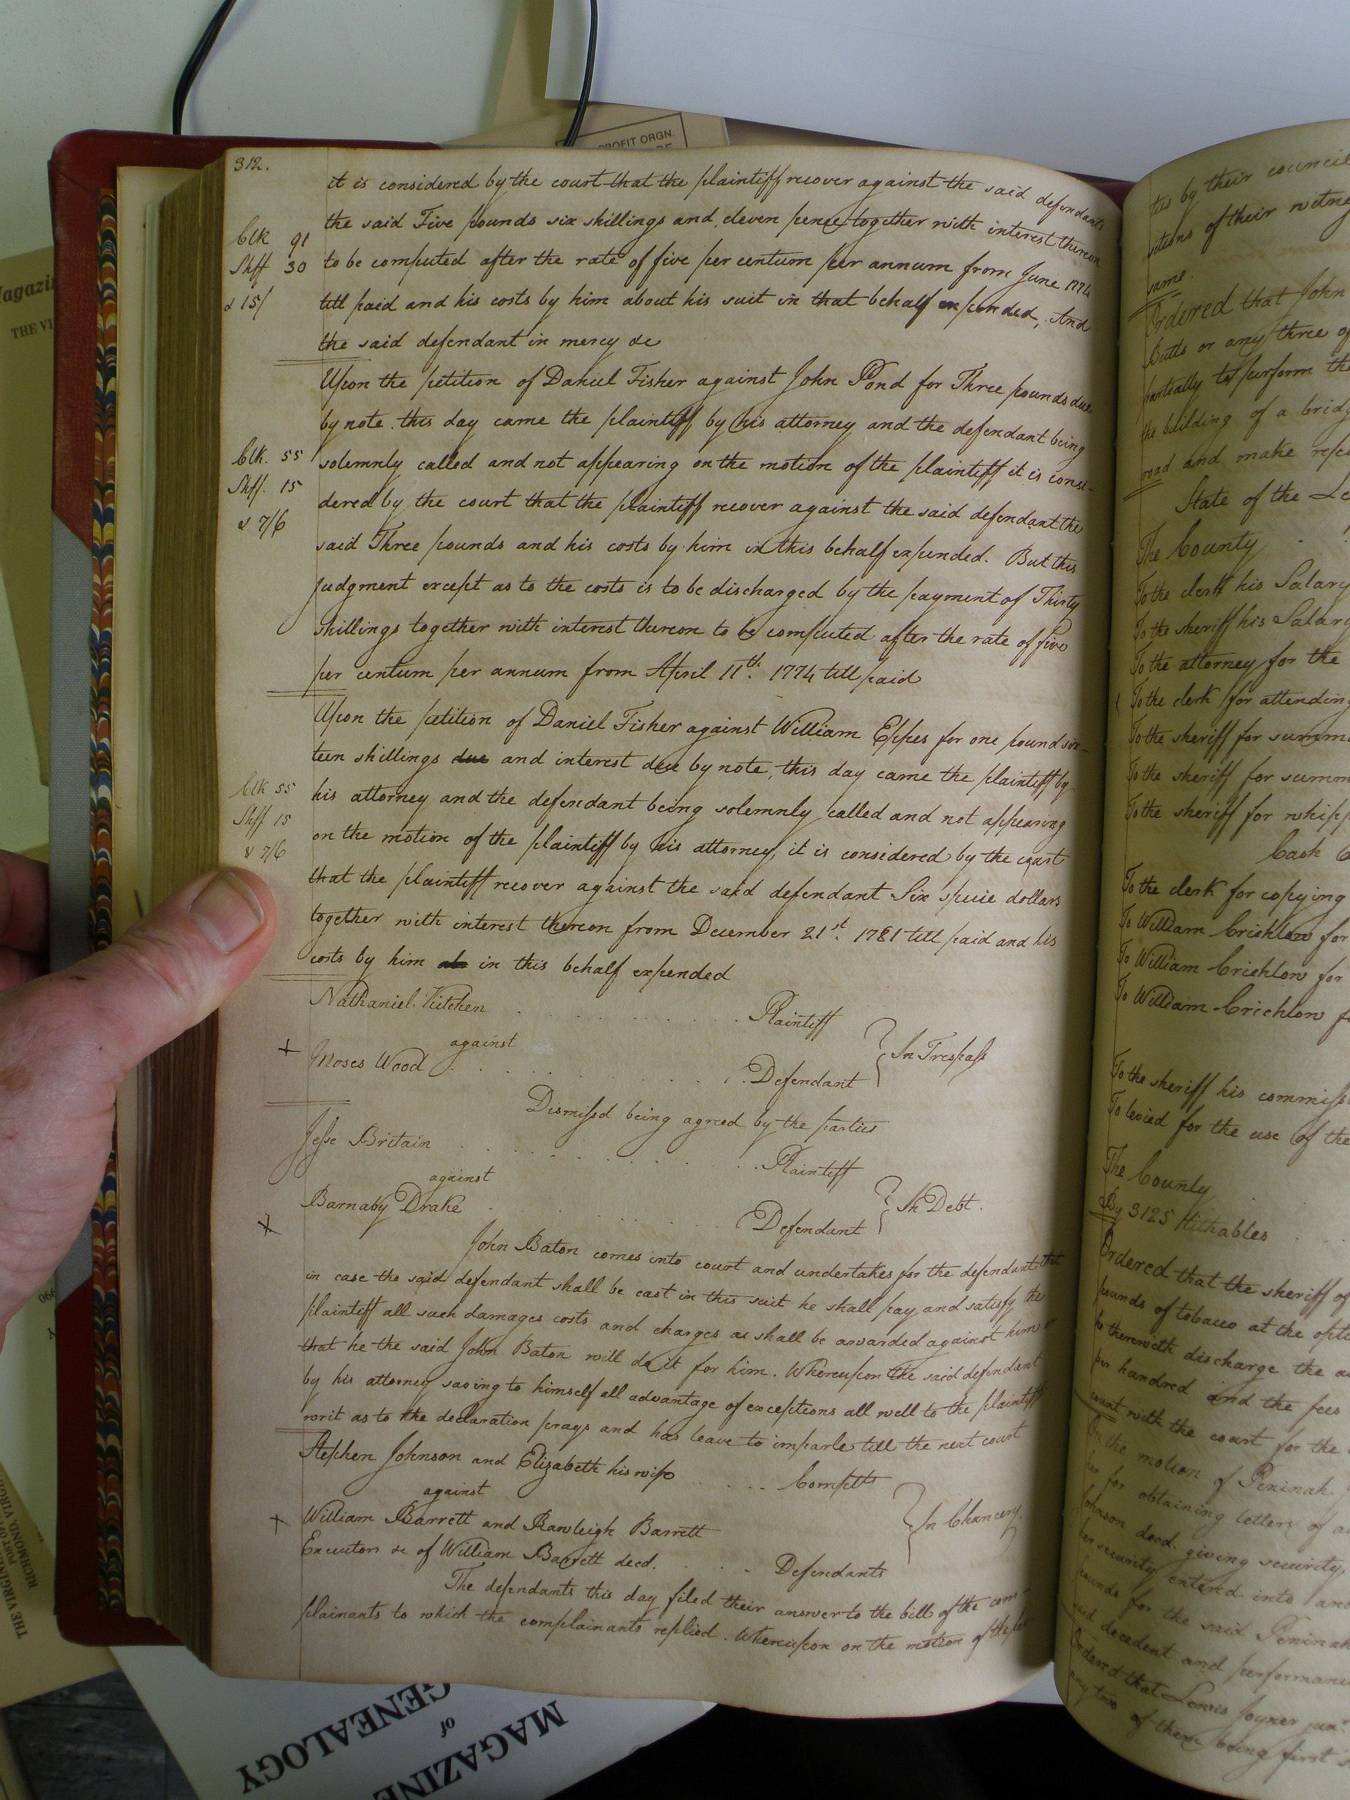 312.
it is considered by the court that the plaintiff recover against the said defendants
the said Five pounds six shillings and eleven pence together with interest thereon
Clk 91
to be computed after the rate of five per centum per annum from June 1774
Shff 30
till paid and his costs by him about his suit in that behalf expended, And
& 15/
the said defendant in mercy &c
Upon the petition of Daniel Fisher against John Pond for Three pounds due
by note this day came the plaintiff by his attorney and the defendant being
Clk. 55
solemnly called and not appearing on the motion of the plaintiff it is consi-
Shff. 15
dered by the court that the plaintiff recover against the said defendant the
& 7/6
said Three pounds and his costs by him in this behalf expended. But this
Judgment except as to the costs is to be discharged by the payment of Thirty
shillings together with interest thereon to be computed after the rate of five
per centum per annum from April 11th. 1774 till paid
Upon the petition of Daniel Fisher against William Eppes for one pound six-
teen shillings due and interest due by note, this day came the plaintiff by
Clk 55
his attorney and the defendant being solemnly called and not appearing
Shff 15
on the motion of the plaintiff by his attorney, it is considered by the court
& 7/6
that the plaintiff recover against the said defendant Six specie dollars
together with interest thereon from December 21st. 1781 till paid and his
costs by him in this behalf expended
Nathaniel Kitchen Plaintiff
against In Trespass
Moses Wood Defendant
Dismissd being agreed by the parties
Jesse Britain Plaintiff
against In Debt.
Barnaby Drake Defendant
John Baton comes into court and undertakes for the defendant that
in case the said defendant shall be cast in this suit he shall pay and satisfy the
plaintiff all such damages costs and charges as shall be awarded against him or
that he the said John Baton will do it for him. Whereupon the said defendant
by his attorney saving to himself all advantage of exceptions all well to the plaintiffs
writ as to the declaration prays and has leave to imparle till the next court
Stephen Johnson and Elizabeth his wife Complts
against In Chancery
William Barrett and Rawleigh Barrett
Executors &c of William Barrett decd. Defendants
The defendants this day filed their answer to the bill of the com-
plainants to which the complainants replied. Whereupon on the motion of the
ties by their council
sitions of their witne
same.
Ordered that John
Butts or any three of
partially to perform the
the building of a bridg
road and make repo
State of the Le
The County
To the clerk his Salary
To the sheriff his Salary
To the attorney for the
To the clerk for attending
To the sheriff for summ
To the sheriff for summ
To the sheriff for whipp
Cash
To the clerk for copying
To William Crichlow for
To William Crichlow for
To William Crichlow f
To the sheriff his commiss
To levied for the use of the
The County
By 3125 tithables
Ordered that the sheriff of
pounds of tobacco at the opti
therewith discharge the
per hundred and the fees
count with the court for the
On the motion of Peninah
for obtaining letters of a
Johnson decd. giving security,
security entered into and
pounds for the said Peninah
said decedent and performan
Ordered that Lewis Joyner junr.
any two of them being first s
PROFIT ORGN.
Magazin
THE VI
THE VIRGINIA
RICHMOND, VIRG
MAGAZINE
of
GENEALOGY